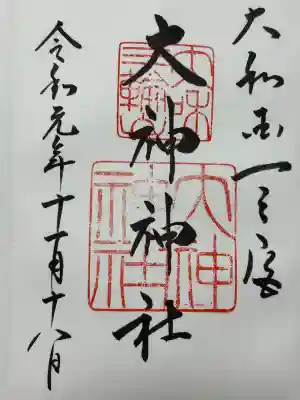 大和国一之宮
三輪明神
大神神社
大神神社
令和元年十一月十八日